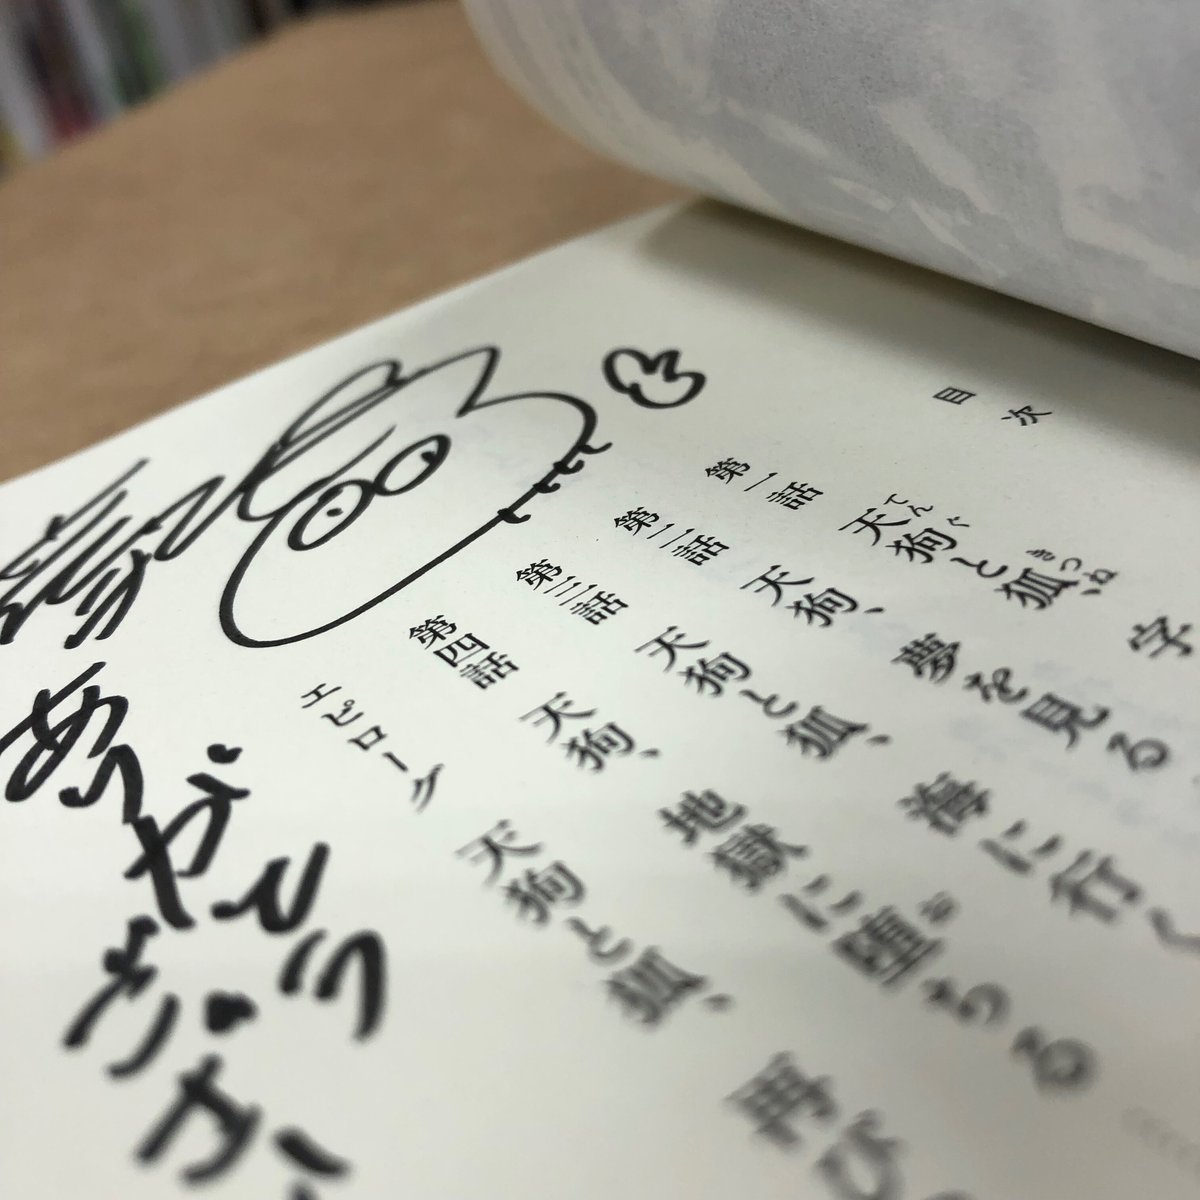 目次
第一話 天狗と狐、字
てんぐ きつね
第二話 天狗、夢を見る
第三話 天狗と狐、海に行く
第四話 天狗、地獄に堕ちる
お
エピローグ 天狗と狐、再び
ありがとう
ござい